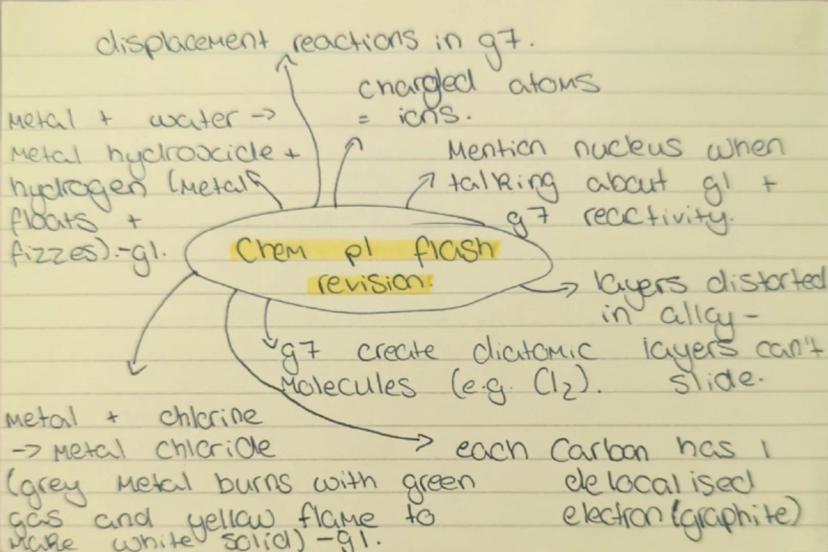 displacement reactions in g7.
charged atoms
= ions.
Metal + water ->
Metal hydroxide +
hydrogen (Metal
floats +
fizzes).-g1.
Mention nucleus when
talking about g1 +
g7 reactivity.
Chem p1 flash
revision:
layers distorted
in alloy -
layers can't
slide.
g7 create diatomic
Molecules (e.g. Cl2).
Metal + chlorine
-> Metal chloride
(grey Metal burns with green
gas and yellow flame to
make white solid) -g1.
each Carbon has 1
delocalised
electron (graphite)